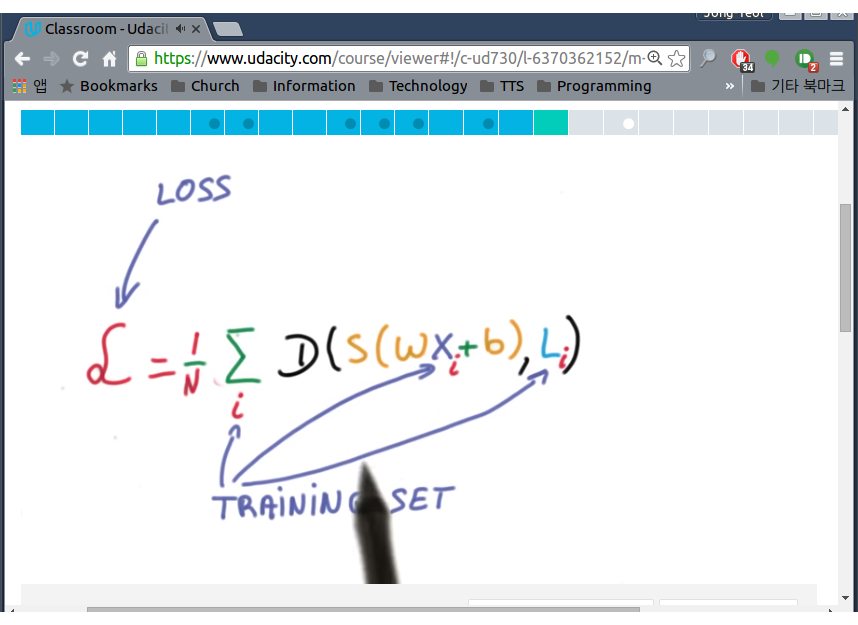 Jong Yeol
Classroom - Udacit
https://www.udacity.com/course/viewer#!/c-ud730/l-6370362152/m-
34
2
앱 Bookmarks Church Information Technology TTS Programming » 기타 북마크
LOSS
ℒ = 1/N Σi D(S(WXi+b), Li)
TRAINING SET